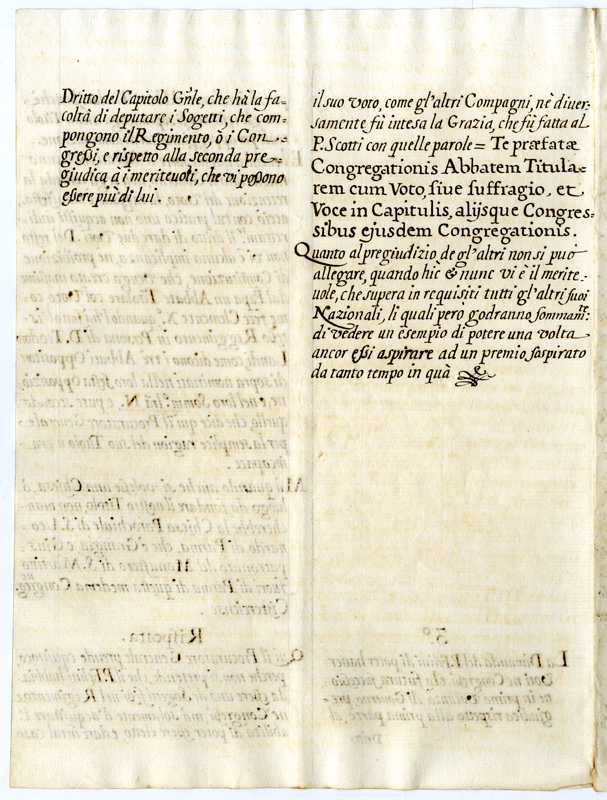 Dritto del Capitolo Gńle, che hà la fa=
coltà di deputare i Sogetti, che com=
pongono il Regimento, ò i Con=
greßi, e rispetto alla seconda pre=
giudica à i meriteuoli, che vi poßono
eßere più di lui.
il suo voto, come gl'altri Compagni, nè diuer=
samente fù intesa la Grazia, che fù fatta al
P. Scotti con quelle parole = Te præfatæ
Congregationis Abbatem Titula=
rem cum Voto, siue suffragio, et
Voce in Capitulis, alijsque Congres=
sibus ejusdem Congregationis.
Quanto al pregiudizio de gl'altri non si può
allegare, quando hic & nunc vi è il merite=
uole, che supera in requisiti tutti gl'altri suoi
Nazionali, li quali però godranno
di vedere un esempio di potere una volta
ancor eßi aspirare ad un premio sospirato
da tanto tempo in quà